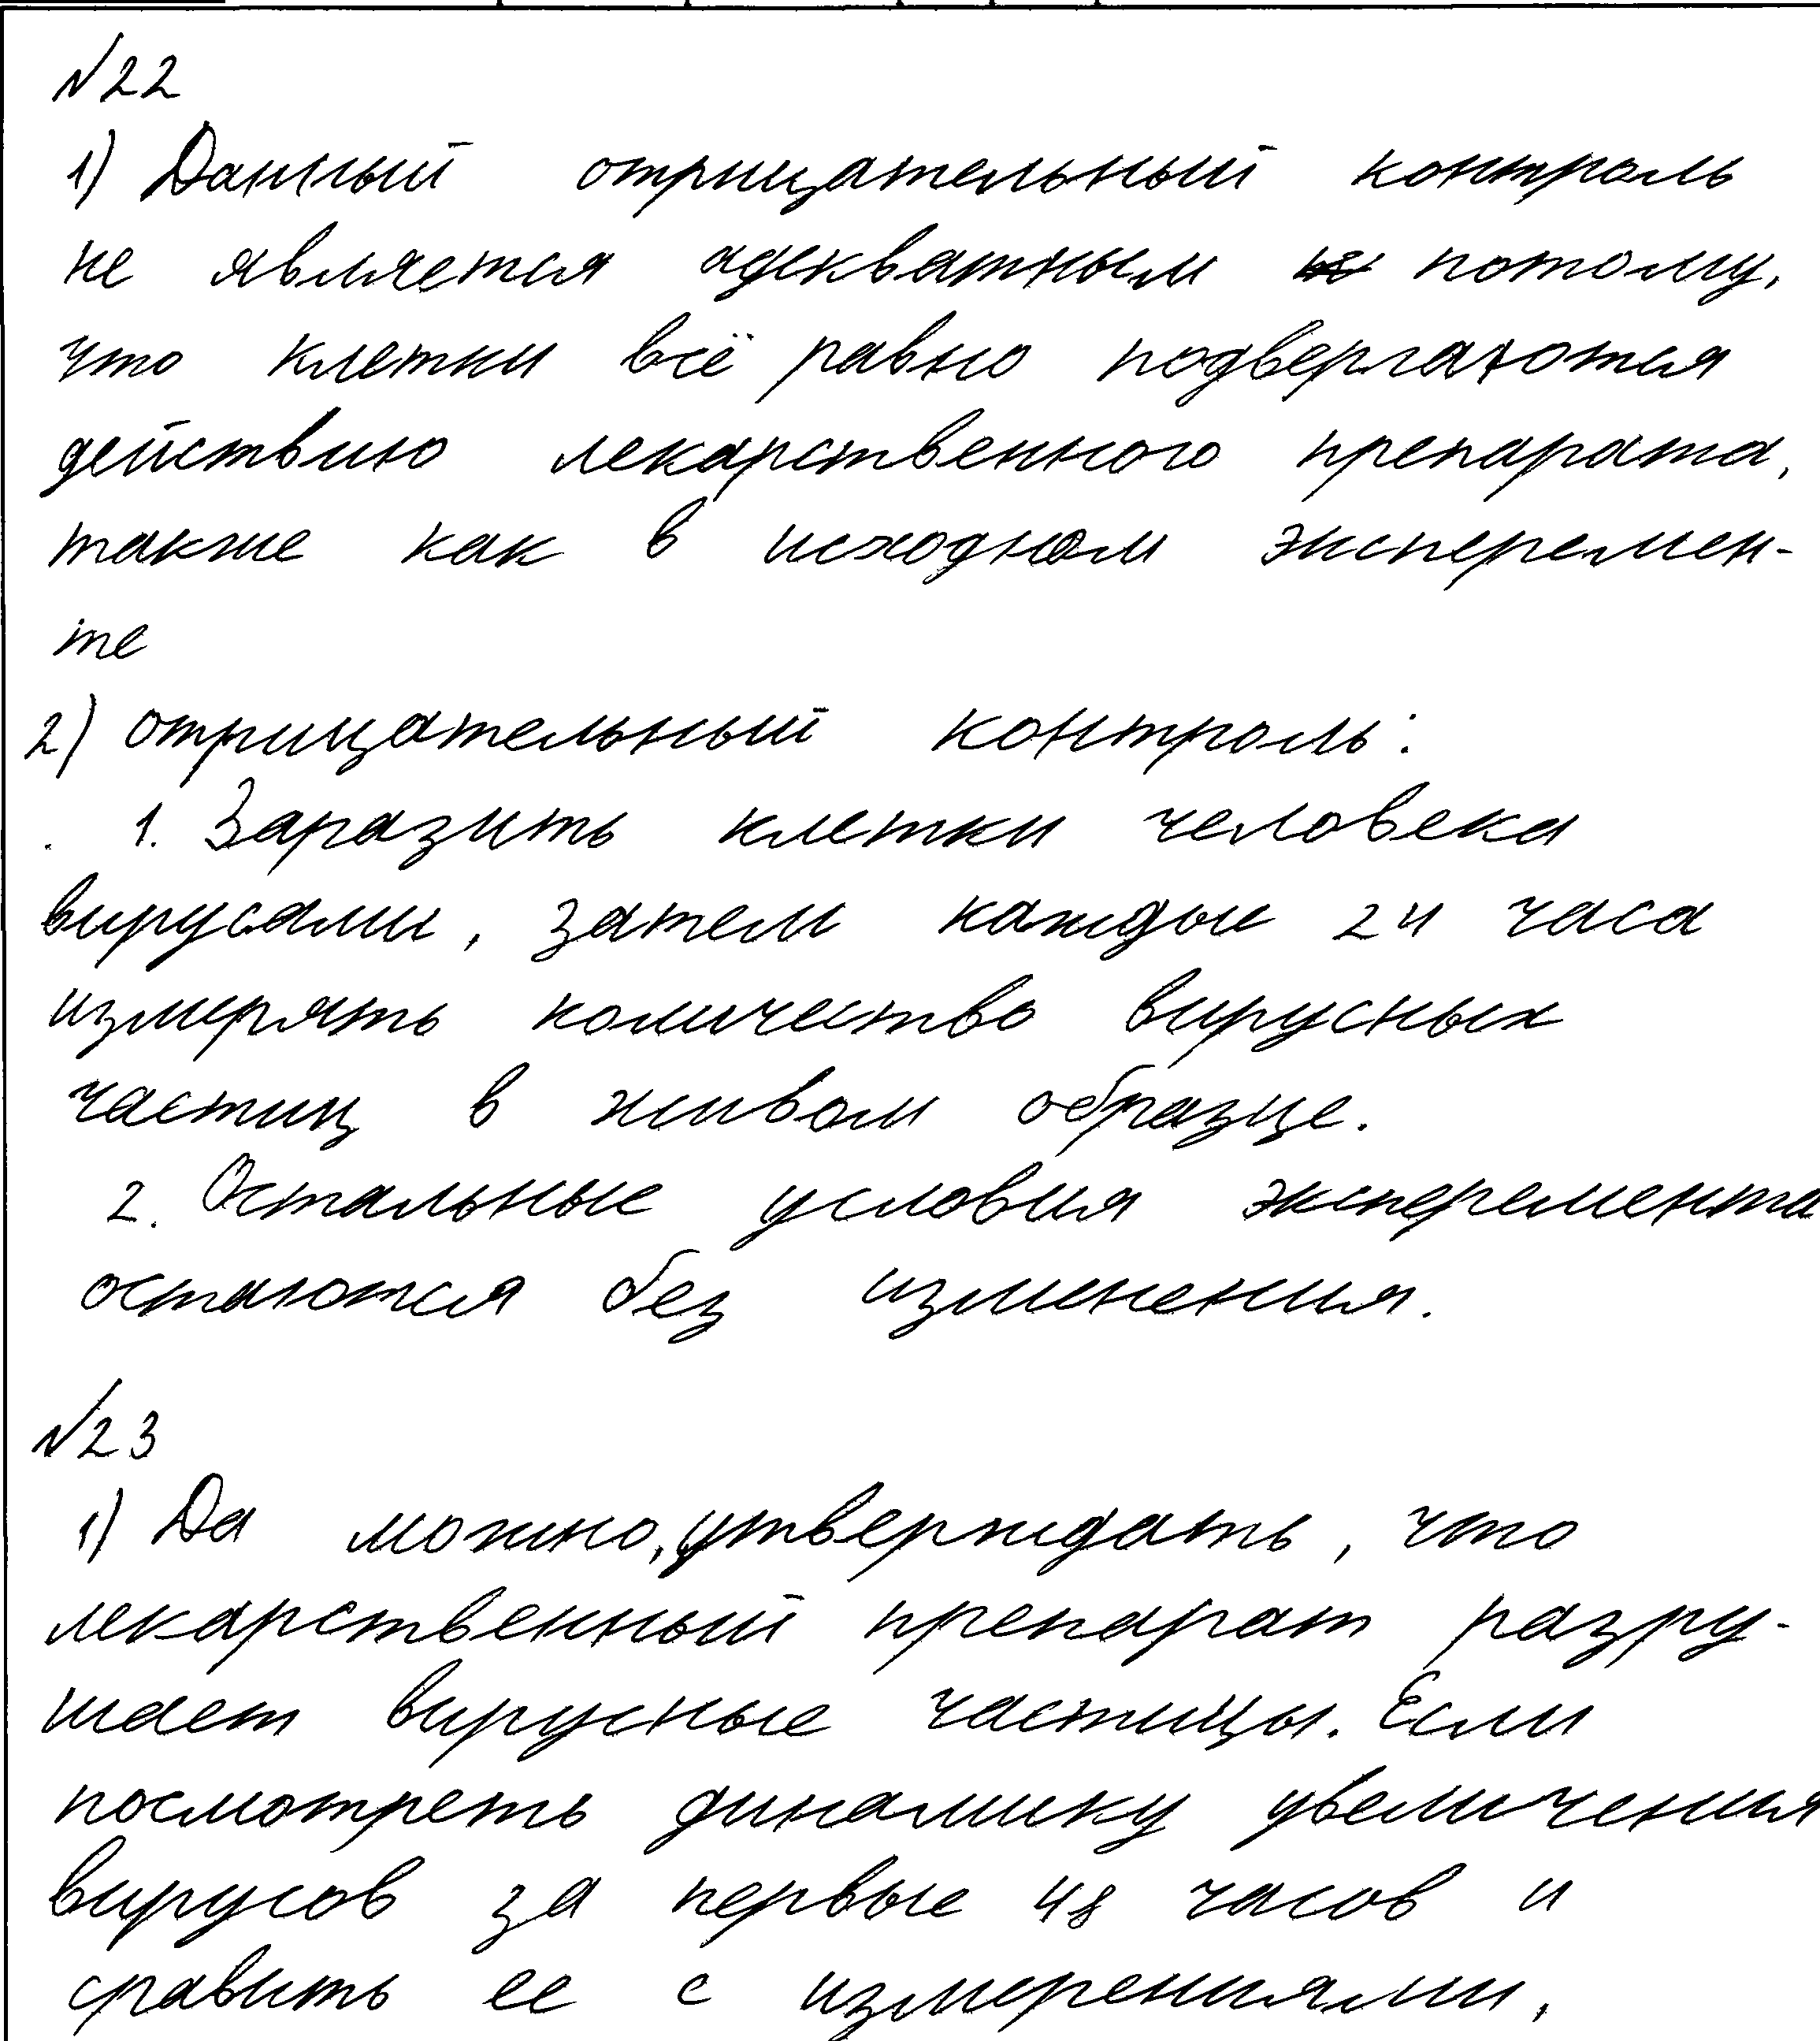 №22
1) Данный отрицательный контроль
не является адекватным потому,
что клетки всё равно подвергаются
действию лекарственного препарата,
также как в исходном эксперемен-
те
2) отрицательный контроль:
1. Заразить клетки человека
вирусами, затем каждые 24 часа
измерять количество вирусных
частиц в живом образце.
2. Остальные условия эксперемента
остаются без изменения.
№23
1) Да можно, утверждать, что
лекарственный препарат разру-
шает вирусные частицы. Если
посмотреть динамику увеличения
вирусов за первые 48 часов и
сравить ее с измерениями,